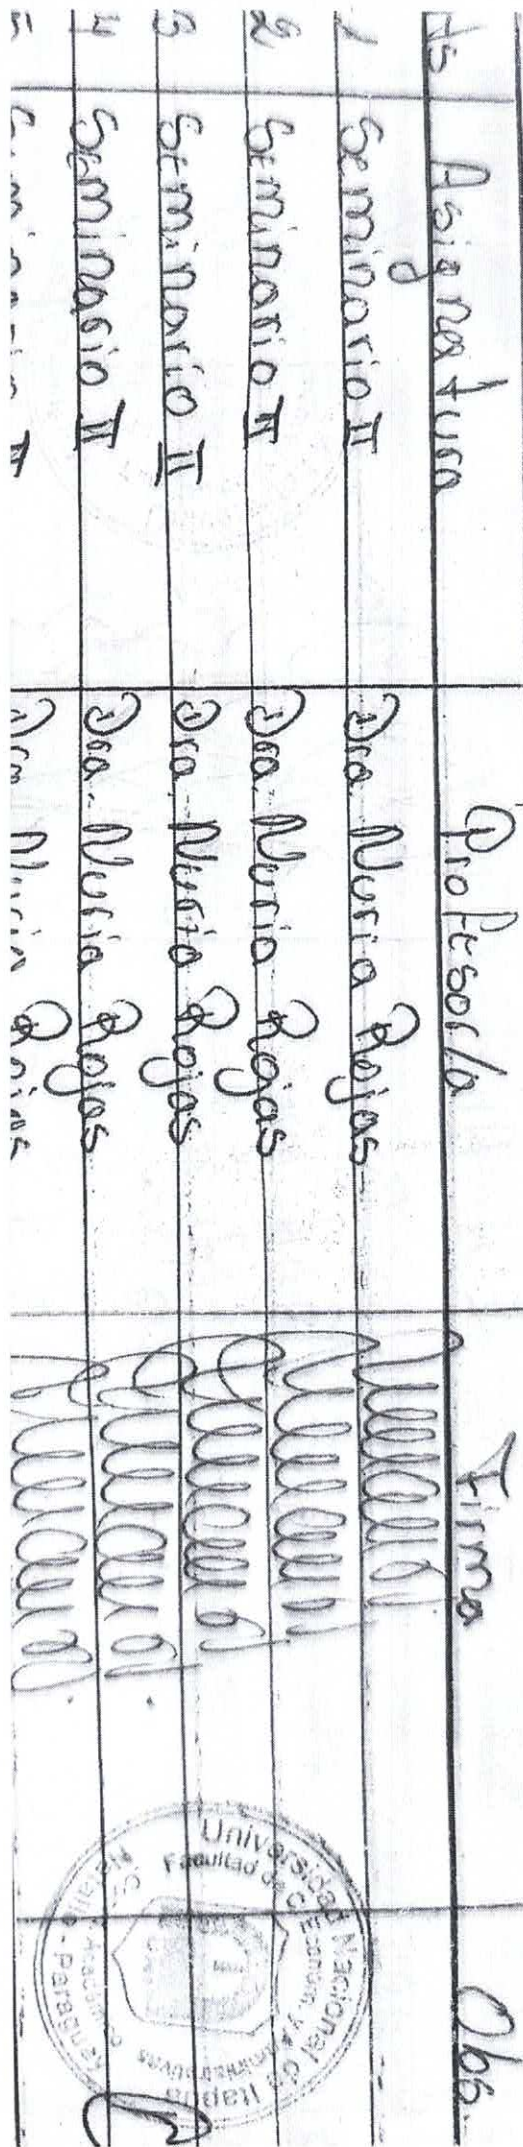 Hs Asignatura Profesor/a Firma Obs.
1 Seminario II Dra. Nuria Rojas
2 Seminario II Dra. Nuria Rojas
3 Seminario II Dra. Nuria Rojas
4 Seminario II Dra. Nuria Rojas
5 Seminario II Dra Nuria Rojas
Universidad Nacional de Itapúa
Facultad de C. Econom. y Administrativas
Natalio - Paraguay